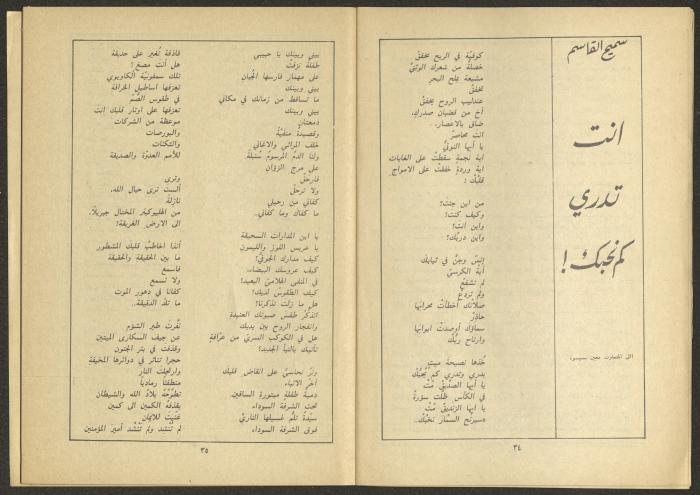 سميح القاسم
انت
تدري
كم نحبك!
(الى المتفاوت معين بسيسو)
كوفيّة في الريح تخفق
خصلة من شعرك الوثنيّ
مشبعة بملح البحر
تخفق
عندليب الروح يخفق
آخ من قضبان صدرك،
ضاق بالاعصار،
انت محاصرٌ
يا أيها النوتيُّ
أية نجمةٍ سقطت على الغابات
اية وردةٍ خفقت على الامواج
قلبُك؟
من اين جئت؟
وكيف كنت؟
واين انت؟
واين دربُك؟
إنسٌ وجنٌ في ثيابك
آية الكرسيّ
لم تشفعْ
ولم تردعْ
صلاتُك أخطأتْ محرابَها
حاذرْ
سماؤك أوصدتْ ابوابها
وارتاح ربُّك
خذها نصيحة ميتٍ
يدري وتدري كم يُحبُّك
يا أيها الصدّيق مُتْ
في الكأس ظلت سَورةٌ
يا أيها الزنديق مُتْ
«سيرنح السمّار نخبُك».
٣٤
بيني وبينك يا حبيبي
طفلةٌ نزفتْ
على مهماز فارسها الجبان
بيني وبينك
ما تساقط من زمانك في مكاني
بيني وبينك
دمعتانِ
وقصيدةٌ منفيّةٌ
خلف المراثي والاغاني
ولنا الدمُ المرسومُ سُنبلةً
على مرج الزؤانِ
فارحلْ
ولا ترحلْ
كفاني من رحيلي
ما كفاك وما كفاني..
يا ابن المدارات السحيقة
يا عريس اللوز والليمون
كيف مدارك الجوفيّ؟
كيف عروسك البيضاء،
في المنفى الهلاميّ البعيد؟
كيف الطقوس لديك؟
هل ما زلت تذكرنا؟
اتذكر طقسَ صبوتك العنيدةِ
وانفجار الروح بين يديك
هل في الكوكب السريّ من عرّافةٍ
تأتيك بالنبأ الجديد؟
ونرَ نحاسيّ على انقاض قلبك
آخرُ الانباء
دميةُ طفلةٍ مبتورة الساقين
تحت الشرفة السوداء
سيّدةٌ تلمّ غسيلها الناريّ
فوق الشرفة السوداء
قاذفة تُغير على حديقة
هل أنت مصغٍ؟
تلك سمفونيّة الكاوبوي
تعزفها اساطيل الخرافة
في طقوس الصُّمّ
تعزفها على اوتار قلبك انتَ
موعظة من الشركات
والبورصات
والثكنات
للأمم العدوّة والصديقة
وترى
ألست ترى حبال الله،
نازلةً
من الهليوكبتر المختال جبريلاً،
الى الارض الغريقة؟
أنذا اخاطبُ قلبك المشطورَ
ما بين الحقيقةِ والحقيقة
فاسمع
ولا تسمع
كفانا في دهور الموت
ما تلدُ الدقيقة..
نفَرت طيرَ الشؤم
عن جيف السكارى الميتين
وقذفت في بئر الجنون
حجرا تناثر في دوائرها المخيفة
وارتجلتَ النار
منطفئاً رمادياً
تطوّحُهُ بلادُ الله والشيطان
يقذفه الكمين الى كمين
غنيّتَ للايمان
لم تُنشد ولم تُنشد أميرَ المؤمنين
٣٥